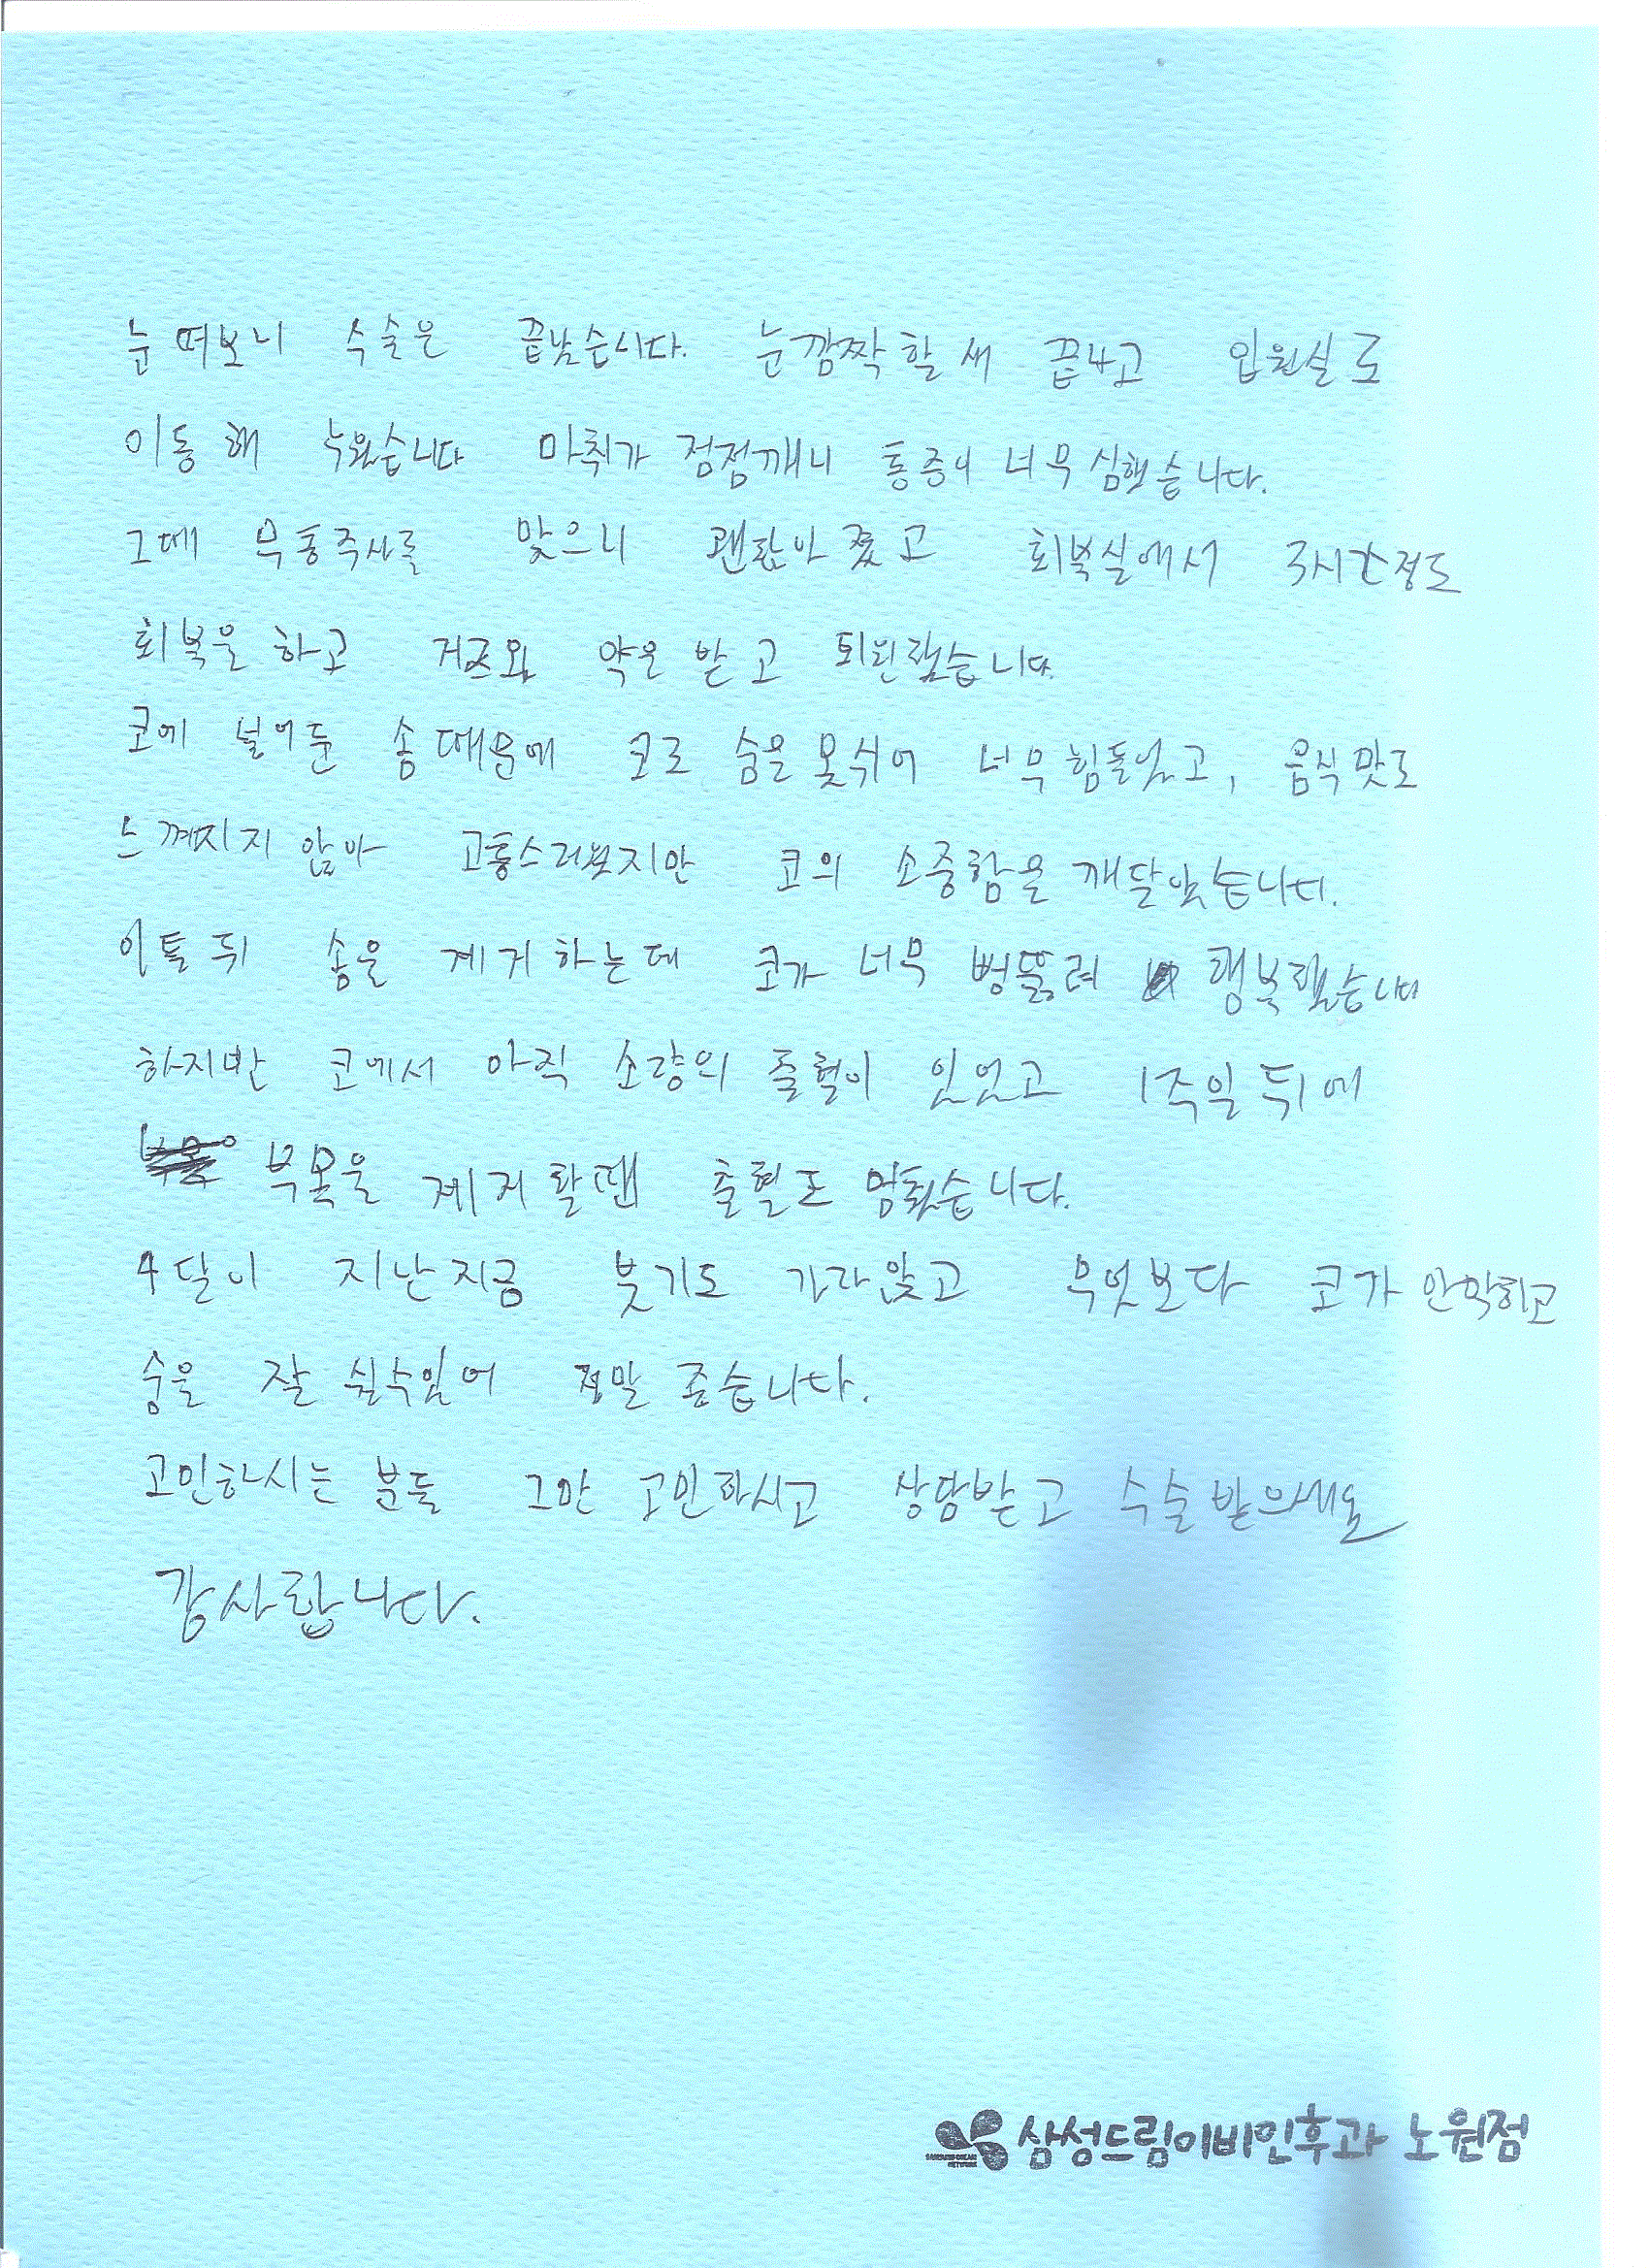 눈떠보니 수술은 끝났습니다. 눈깜짝할새 끝나고 입원실로
이동해 누웠습니다 마취가 점점깨니 통증이 너무심했습니다.
그때 무통주사를 맞으니 괜찮아졌고 회복실에서 3시간정도
회복을 하고 거즈와 약을 받고 퇴원했습니다.
코에 넣어둔 솜 때문에 코로 숨을못쉬어 너무힘들었고, 음식맛도
느껴지지 않아 고통스러웠지만 코의 소중함을 깨달았습니다.
이틀뒤 솜을 제거하는데 코가 너무 뻥뚫려 행복했습니다
하지만 코에서 아직 소량의 출혈이 있었고 1주일뒤에
부목을 제거할땐 출혈도 멈췄습니다.
4달이 지난지금 붓기도 가라앉고 무엇보다 코가 안막히고
숨을 잘 쉴수있어 정말 좋습니다.
고민하시는 분들 그만 고민하시고 상담받고 수술받으세요
감사합니다.
삼성드림이비인후과 노원점